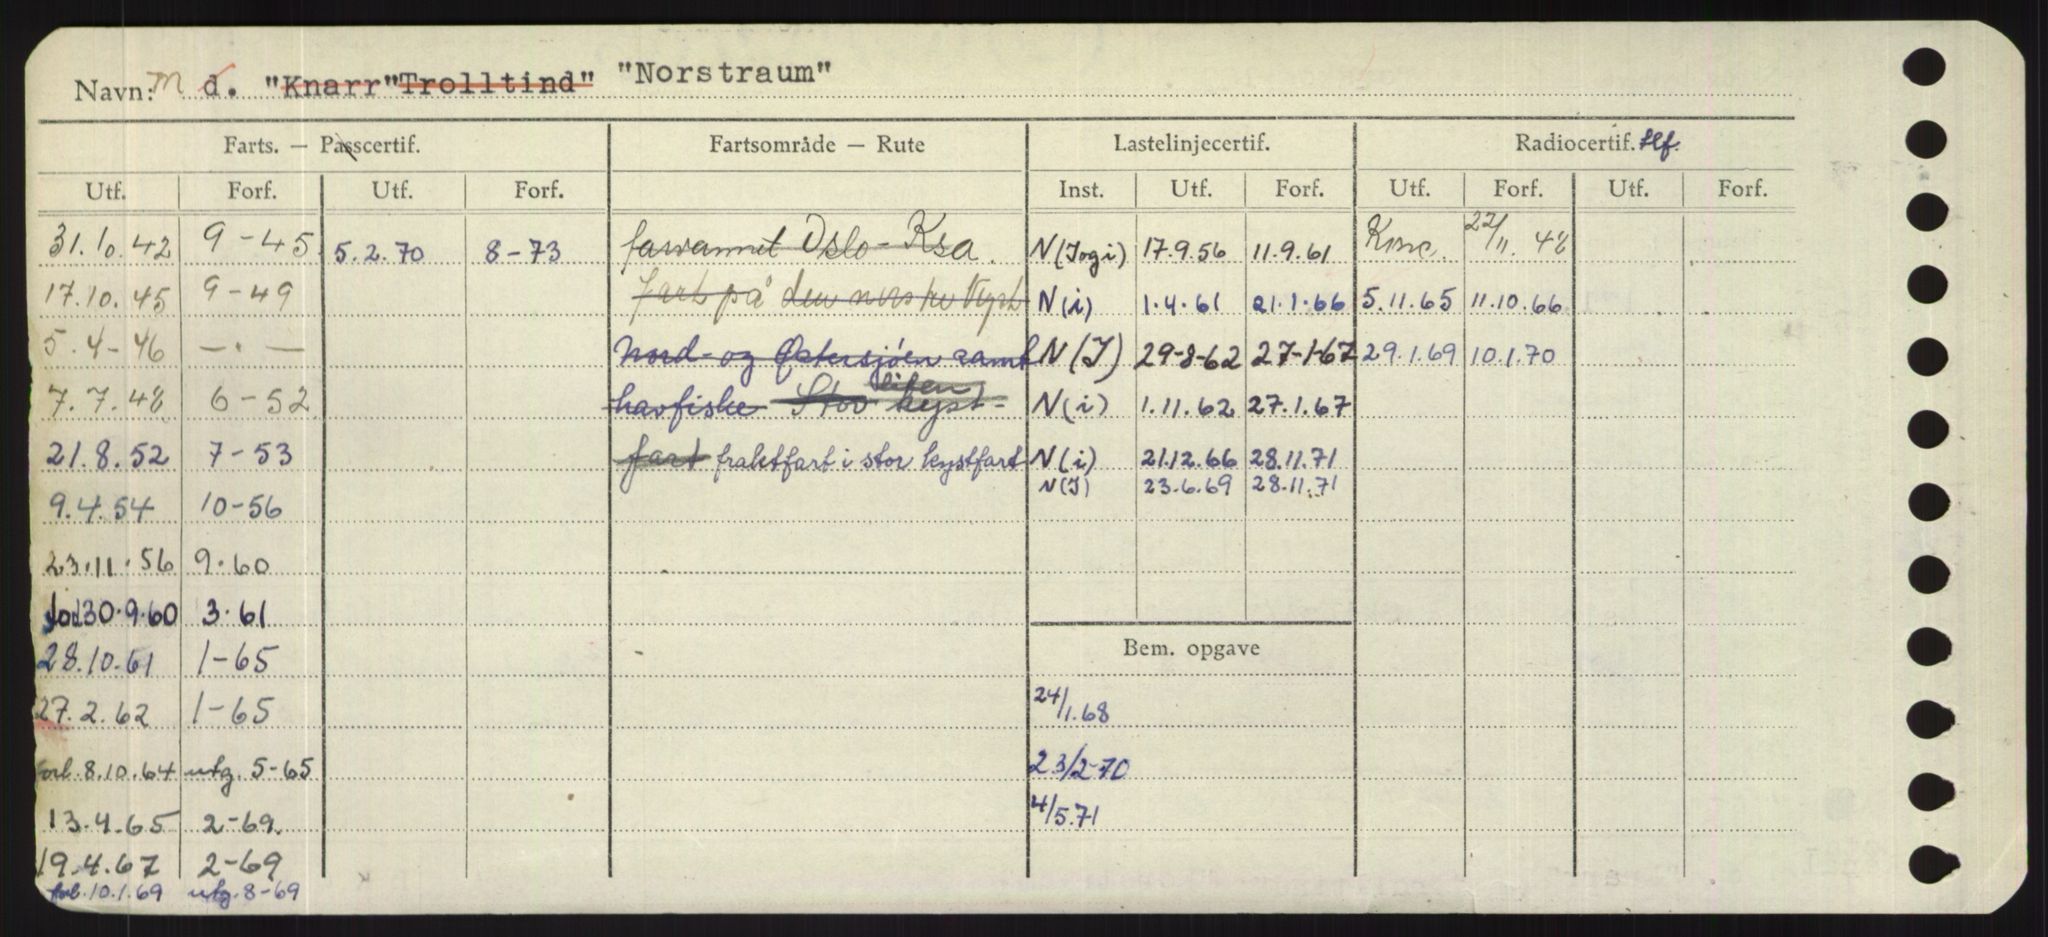 Navn: M d. "Knarr" "Trolltind" "Norstraum"
Farts. — Passcertif. Fartsområde — Rute Lastelinjecertif. Radiocertif. tlf.
Utf. Forf. Utf. Forf. Inst. Utf. Forf. Utf. Forf. Utf. Forf.
31.10.42 9-45 5.2.70 8-73 farvannet Oslo - Ksa. N (I og i) 17.9.56 11.9.61 Konc. 22/11.48
17.10.45 9-49 fart på den norske kyst N (i) 1.4.61 21.1.66 5.11.65 11.10.66
5.4-46 —.— Nord- og Østersjøen samt N (I) 29-8-62 27-1-67 29.1.69 10.1.70
7.7.48 6-52 havfiske Stor liten kyst- N (i) 1.11.62 27.1.67
21.8.52 7-53 fart fraktfart i stor kystfart N (i) 21.12.66 28.11.71
N (I) 23.6.69 28.11.71
9.4.54 10-56
23.11.56 9.60
30.9.60 3.61
28.10.61 1-65 Bem. opgave
27.2.62 1-65 24/1.68
forl. 8.10.64 utg. 5-65 23/2-70
13.4.65 2-69. 4/5.71
19.4.67 2-69
forl. 10.1.69 utg. 8-69